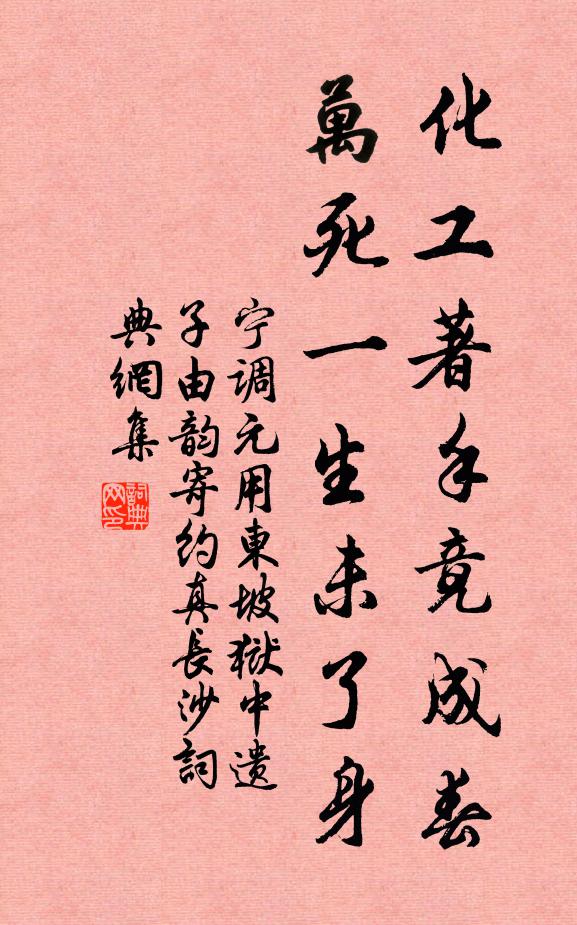 化工著手竟成春
萬死一生未了身
宁調元用東坡獄中遺
子由韵寄約真長沙詞
典網集
詞典
网印